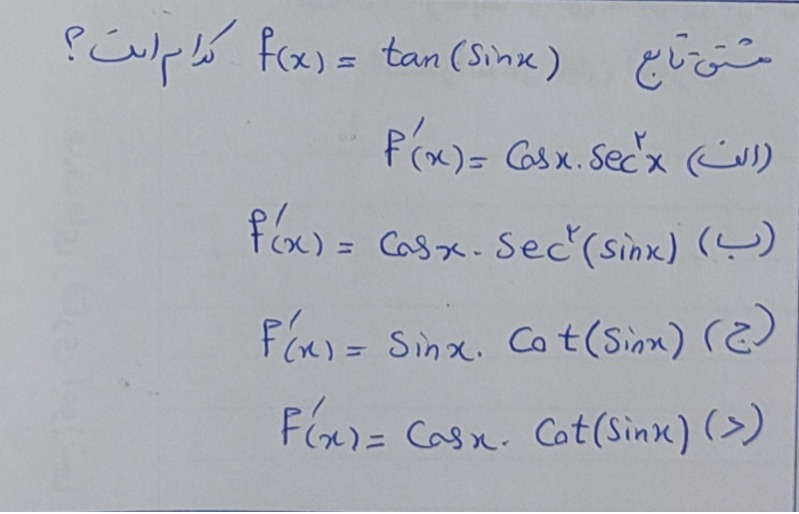 مشتق تابع f(x) = tan(sinx) کدام است؟
الف) f′(x) = Cosx . Sec²x
ب) f′(x) = Cosx . Sec²(sinx)
ج) f′(x) = Sinx . Cot(Sinx)
د) f′(x) = Cosx . Cot(Sinx)